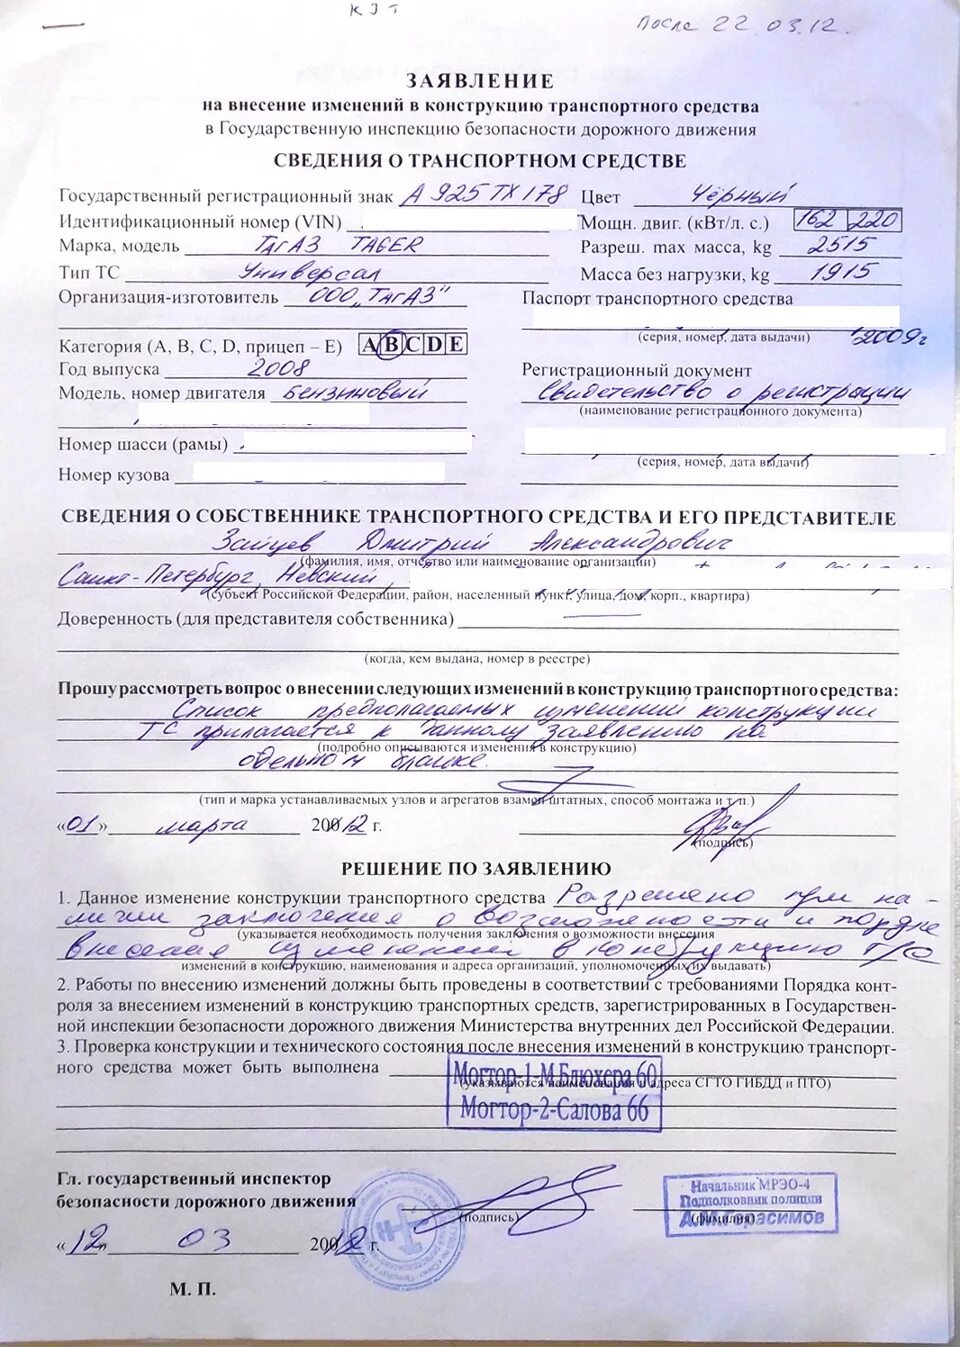 КЗТ
После 22.03.12.
ЗАЯВЛЕНИЕ
на внесение изменений в конструкцию транспортного средства
в Государственную инспекцию безопасности дорожного движения
СВЕДЕНИЯ О ТРАНСПОРТНОМ СРЕДСТВЕ
Государственный регистрационный знак А 925 ТХ 178 Цвет Чёрный
Идентификационный номер (VIN) Мощн. двиг. (кВт/л. с.) 162 220
Марка, модель ТагАЗ TAGER Разреш. max масса, kg 2515
Тип ТС Универсал Масса без нагрузки, kg 1915
Организация-изготовитель ООО "ТагАЗ" Паспорт транспортного средства
(серия, номер, дата выдачи) 2009г
Категория (A, B, C, D, прицеп – E) A B C D E
Год выпуска 2008 Регистрационный документ
Модель, номер двигателя Бензиновый Свидетельство о регистрации
(наименование регистрационного документа)
Номер шасси (рамы)
(серия, номер, дата выдачи)
Номер кузова
СВЕДЕНИЯ О СОБСТВЕННИКЕ ТРАНСПОРТНОГО СРЕДСТВА И ЕГО ПРЕДСТАВИТЕЛЕ
Зайцев Дмитрий Александрович
(фамилия, имя, отчество или наименование организации)
Санкт-Петербург, Невский,
(субъект Российской Федерации, район, населенный пункт, улица, дом, корп., квартира)
Доверенность (для представителя собственника)
(когда, кем выдана, номер в реестре)
Прошу рассмотреть вопрос о внесении следующих изменений в конструкцию транспортного средства:
Список предполагаемых изменений конструкции
ТС прилагается к данному заявлению на
(подробно описываются изменения в конструкцию)
отдельном бланке.
(тип и марка устанавливаемых узлов и агрегатов взамен штатных, способ монтажа и т.п.)
«01» марта 20012 г.
(подпись)
РЕШЕНИЕ ПО ЗАЯВЛЕНИЮ
1. Данное изменение конструкции транспортного средства Разрешено при на-
личии заключения о возможности и порядке
(указывается необходимость получения заключения о возможности внесения
внесения изменений в конструкцию Т/С
изменений в конструкцию, наименования и адреса организаций, уполномоченных их выдавать)
2. Работы по внесению изменений должны быть проведены в соответствии с требованиями Порядка конт-
роля за внесением изменений в конструкцию транспортных средств, зарегистрированных в Государствен-
ной инспекции безопасности дорожного движения Министерства внутренних дел Российской Федерации.
3. Проверка конструкции и технического состояния после внесения изменений в конструкцию транспорт-
ного средства может быть выполнена
Могтор-1-М.Блюхера 60
(указываются наименования и адреса СГТО ГИБДД и ПТО)
Могтор-2-Салова 66
Гл. государственный инспектор
безопасности дорожного движения
(подпись)
Начальник МРЭО-4
Подполковник полиции
(фамилия)
А.М.Герасимов
«12» 03 20012 г.
М. П.